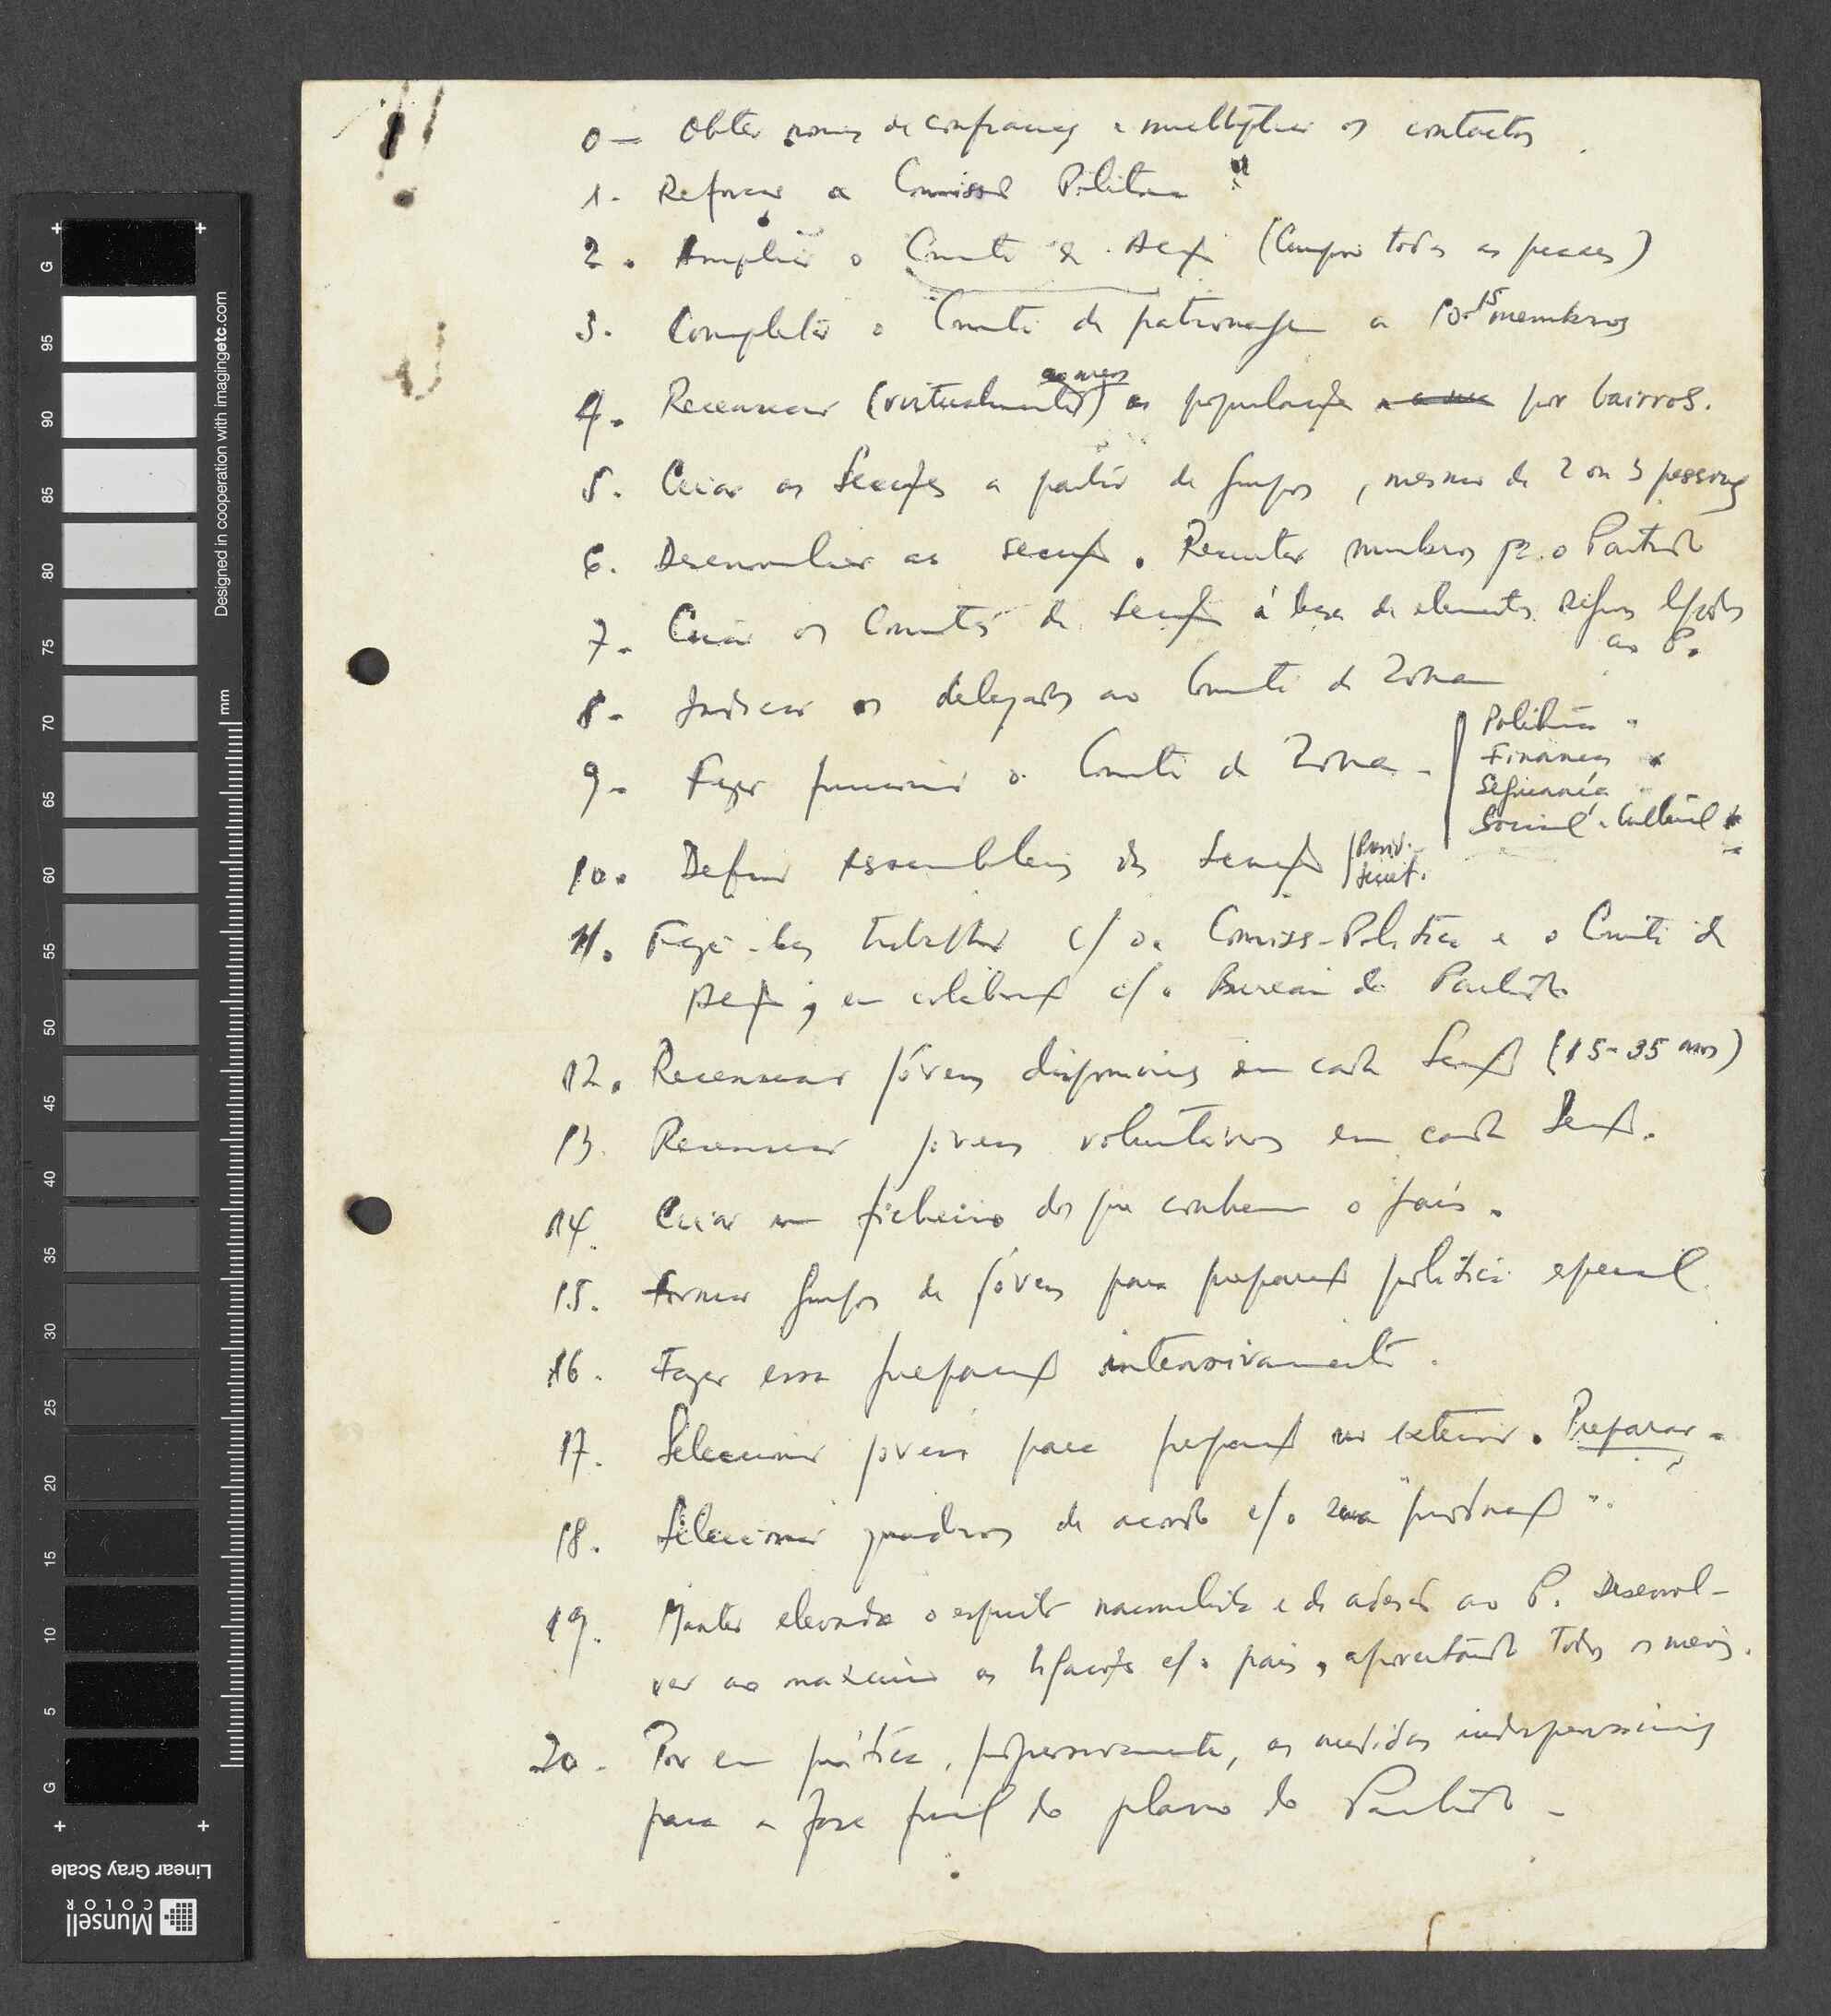 0 – Obter nomes de confiança e multiplicar os contactos
1. Reforçar a Comissão Política
2. Ampliar o Comité de Acção (Compor todas as peças)
3. Completar o Comité de patronagem a 10-15 membros
as áreas
4. Recensear (virtualmente) as população por bairros.
5. Criar as Secções a partir de grupos, mesmo de 2 ou 3 pessoas
6. Desenvolver as secções. Recrutar membros pª. o Partido
7. Criar os Comités de Secção à base de elementos seguros ligados
ao P.
8. Indicar os delegados ao Comité de Zona
9. Fazer funcionar o Comité de Zona –
Política
Finanças
Segurança
Social e Cultural
10. Definir Assembleias das Secção
Presid.
Secret.
11. Fazê-las trabalhar c/ a Comiss-Política e o Comité de
Acção, em colaboração c/ o Bureau do Partido
12. Recensear jóvens disponíveis em cada Secção (15-35 anos)
13. Recensear jovens voluntários em cada Secção.
14. Criar um ficheiro dos que conhecem o país.
15. Formar grupos de jóvens para preparação política especial
16. Fazer essa preparação intensivamente.
17. Seleccionar jovens para preparação no exterior. Preparar.
18. Seleccionar quadros de acordo c/ a sua "produção".
19. Manter elevado o espírito nacionalista e de adesão ao P. Desenvol-
ver ao máximo as ligações c/ o país, aproveitando todos os meios.
20. Por em prática, progressivamente, as medidas indispensáveis
para a fase final do plano do Partido –
G
95
90
85
80
75
70
65
60
55
50
45
40
35
30
25
20
15
10
5
G
mm
Designed in cooperation with imagingetc.com
Linear Gray Scale
Munsell
COLOR